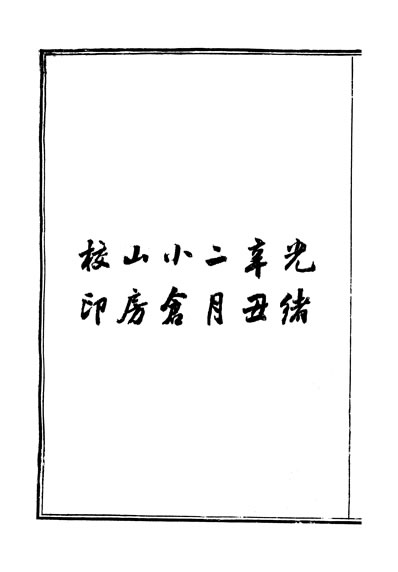 光緒
辛丑
二月
小倉
山房
校印